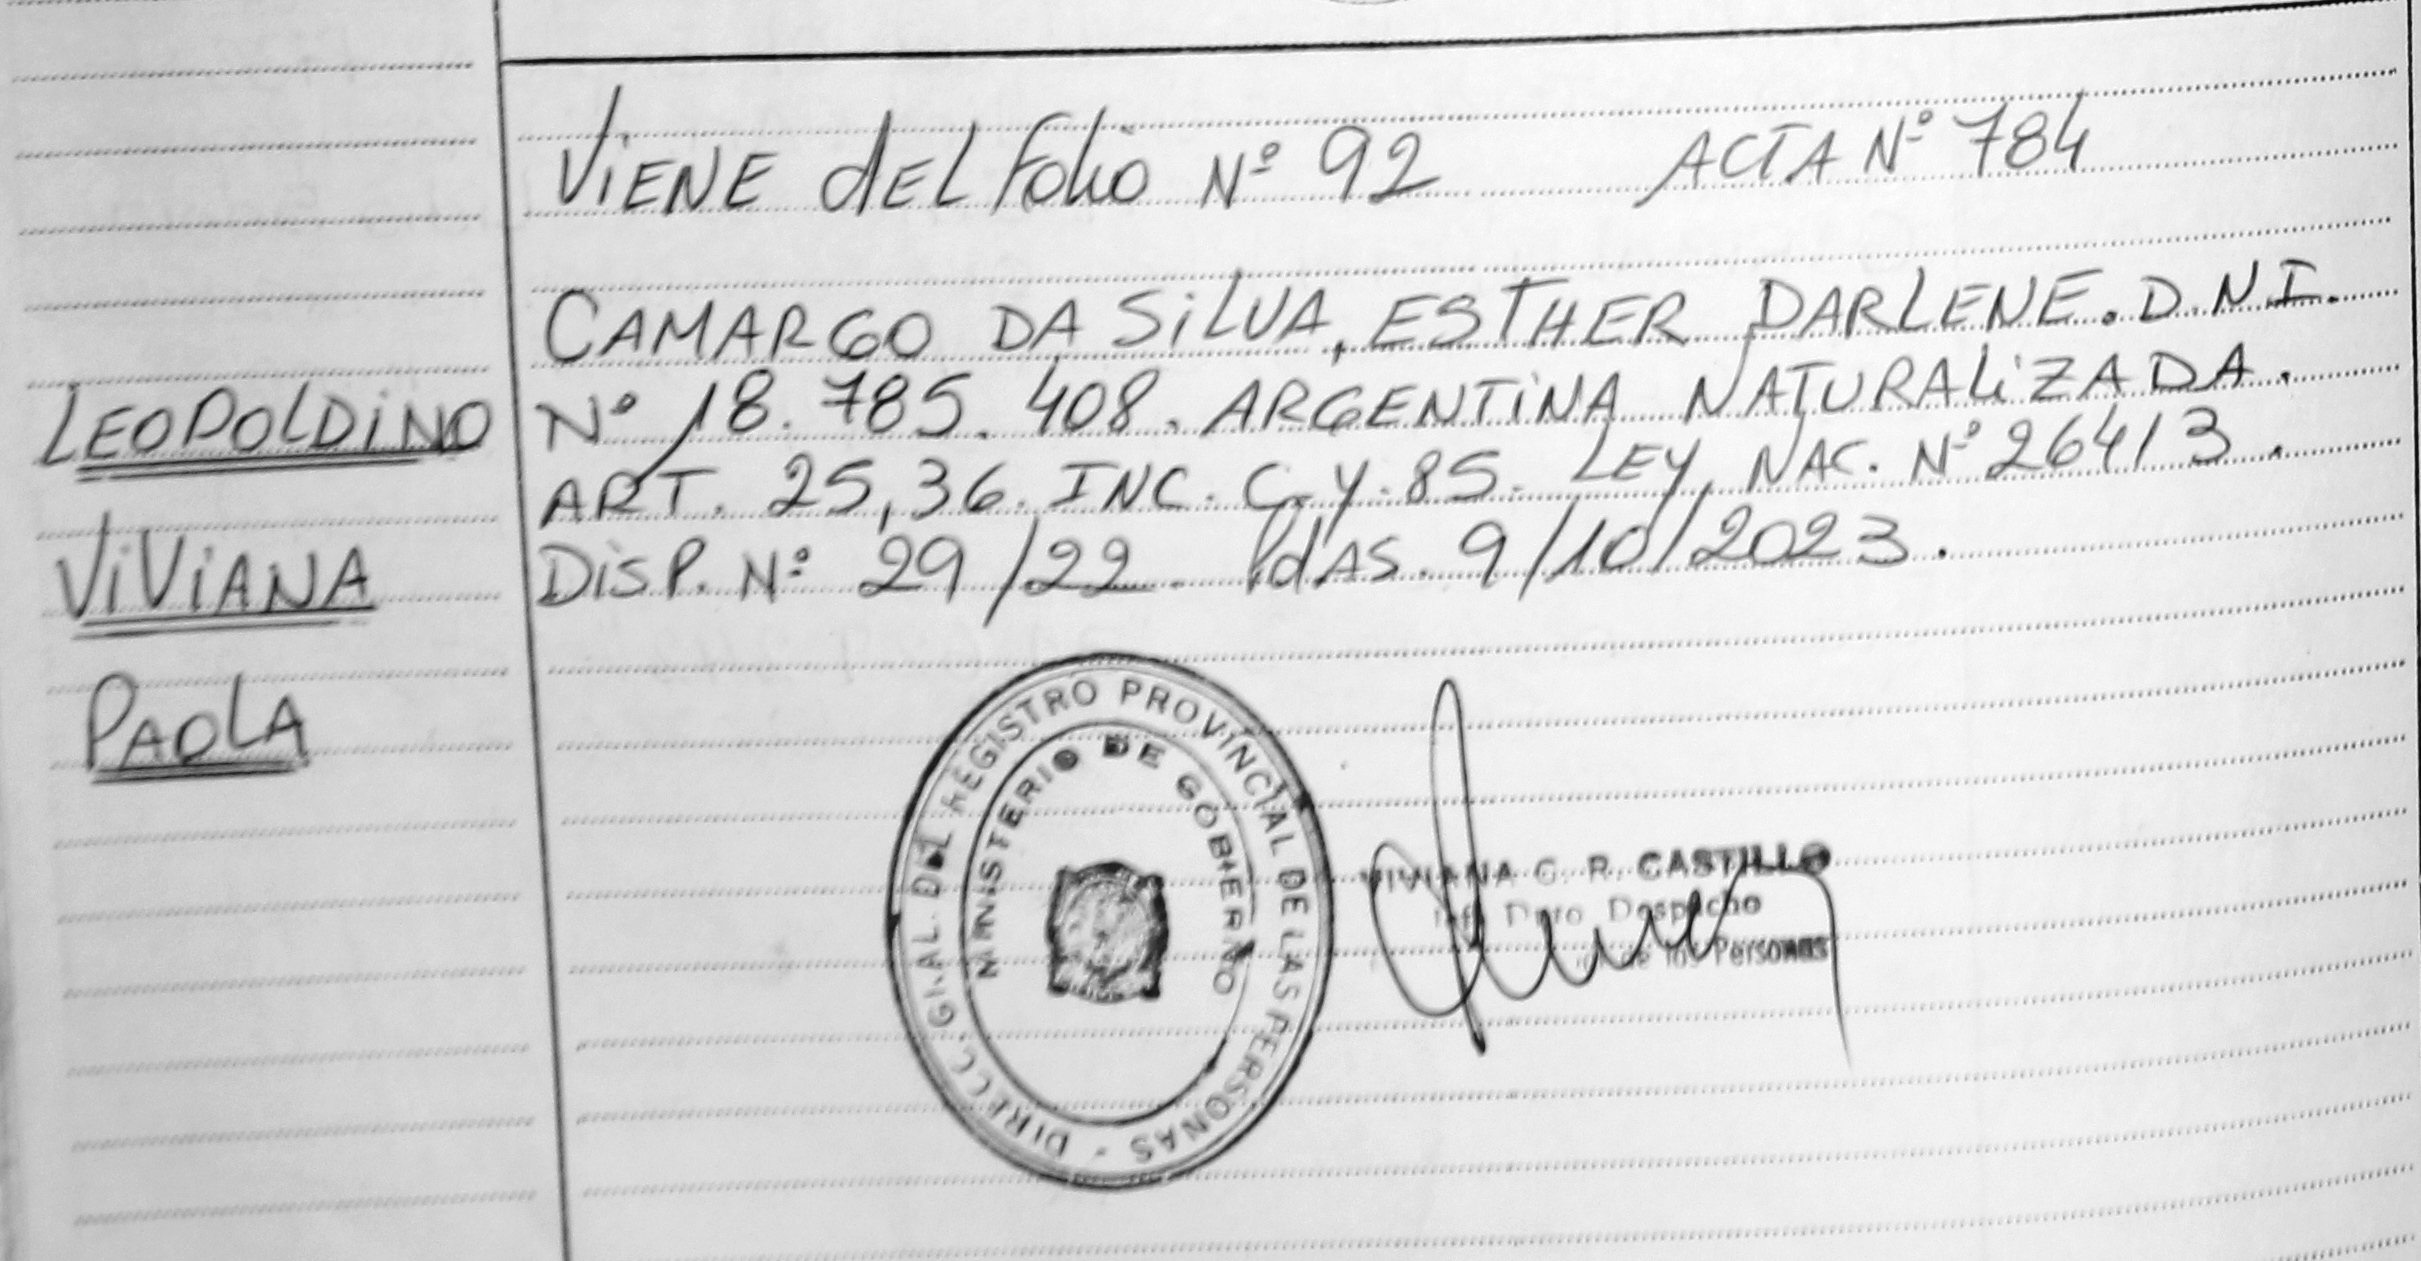 VIENE dEL FOLIO Nº 92 ACTA Nº 784
CAMARGO DA SILVA, ESTHER DARLENE. D.N.I.
Nº 18.785.408. ARGENTINA NATURALIZADA.
ART. 25,36. INC. C. y. 85. LEY, NAC. Nº 26413.
DISP. Nº 29/22. PdAS. 9/10/2023.
LEOPOLDINO
VIVIANA
PAOLA
DIRECC. GRAL. DEL REGISTRO PROVINCIAL DE LAS PERSONAS -
MINISTERIO DE GOBIERNO
VIVIANA C. R. CASTILLO
Dpto. Despacho
de las Personas